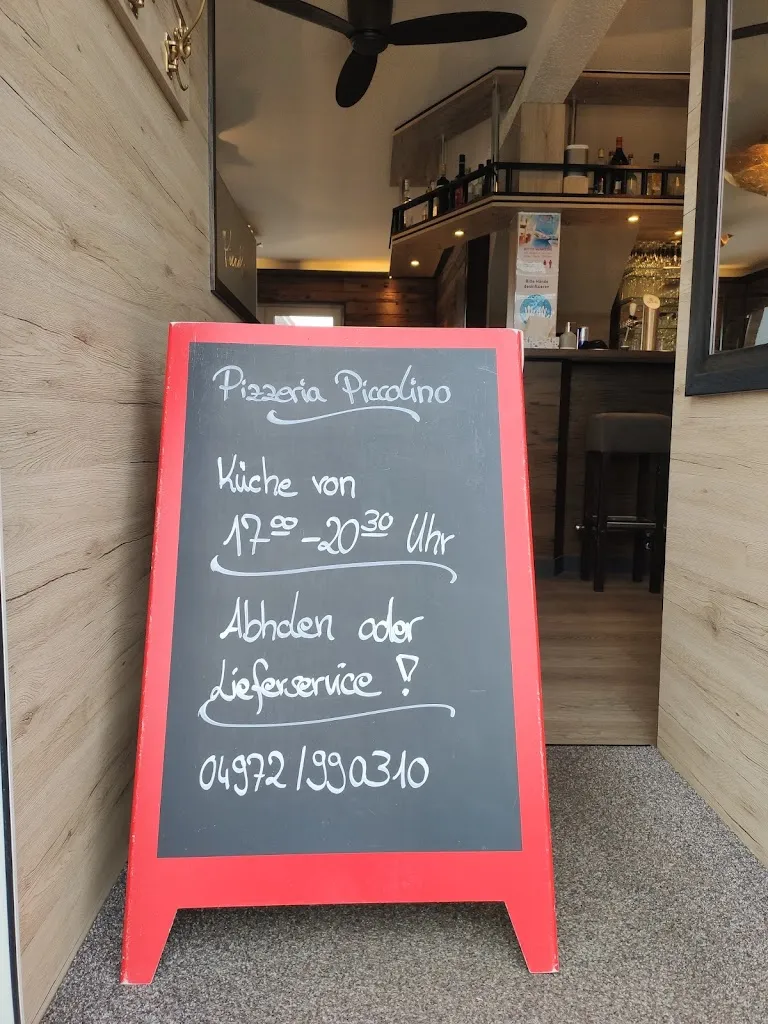 Pizzeria Piccolino
Küche von
17⁰⁰-20³⁰ Uhr
Abholen oder
Lieferservice!
04972/990310